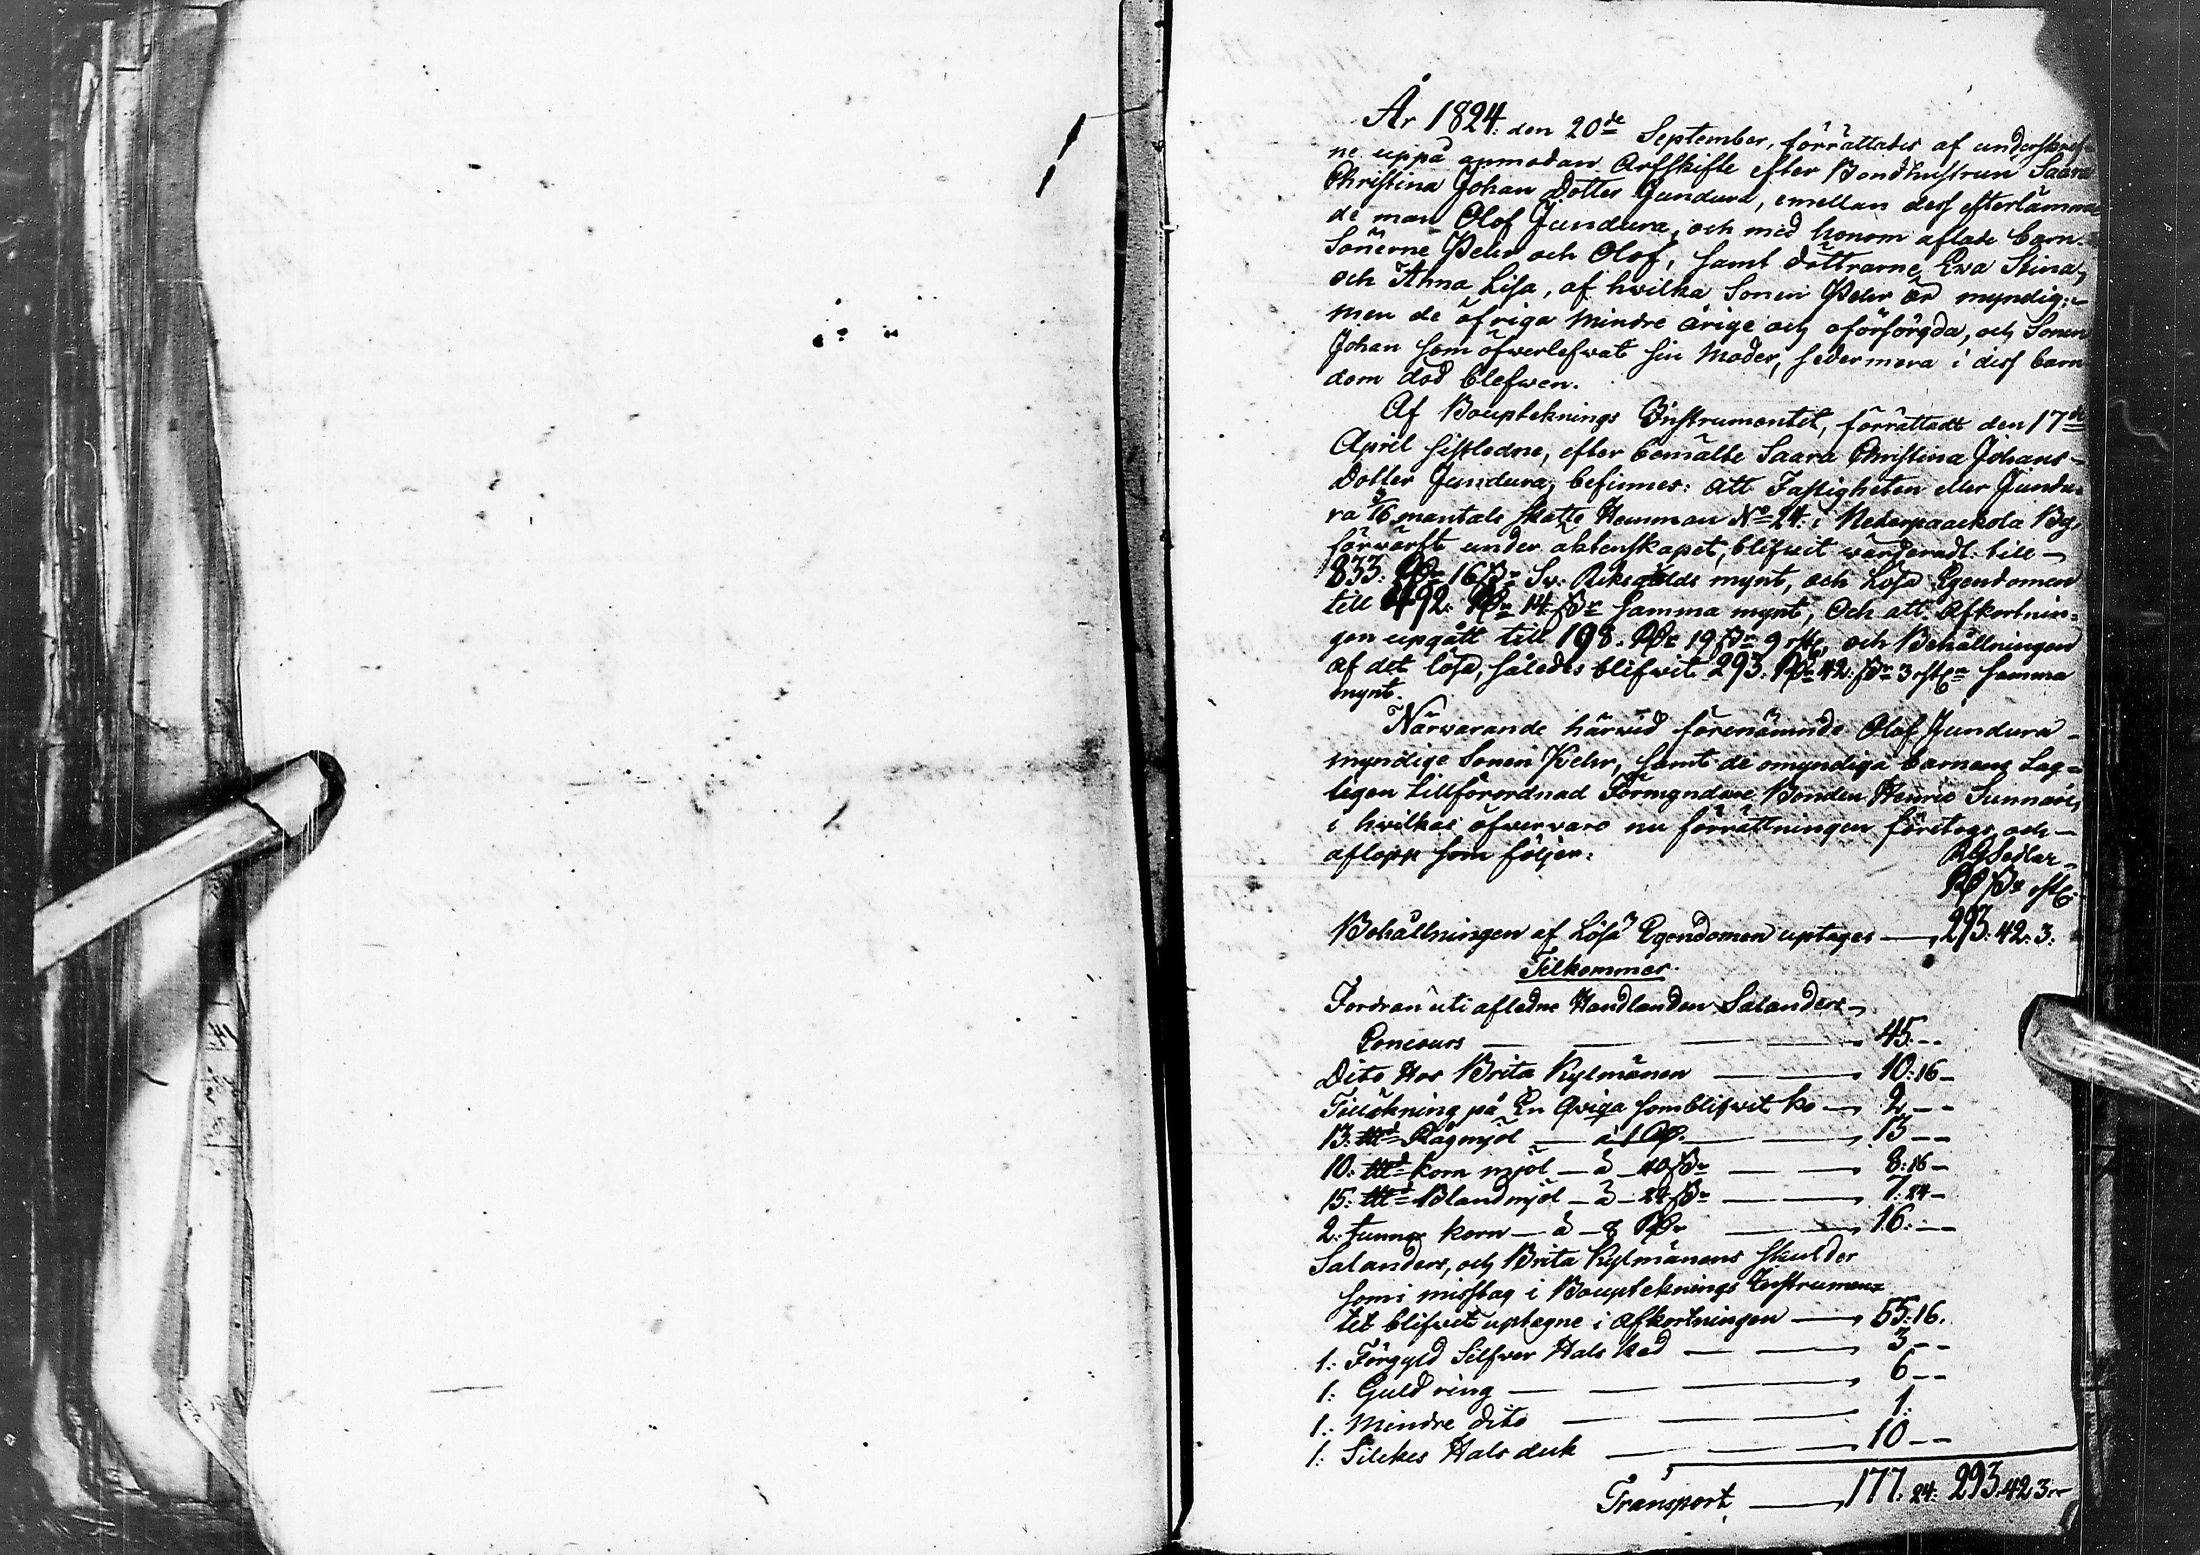 År 1824. den 20de September, förrättades af underskref-
ne uppå anmodan Arfskifte efter Bondhustrun Saara
Christina Johan Dotter Jundura, emellan dess efterlämna
de man Olof Jundura, och med honom aflade barn.
Sönerne Pehr och Olof, samt döttrarne Eva Stina,
och Anna Lisa, af hvilka Sonen Pehr är myndig:
men de öfriga mindre årige och oförsörgda, och Sonen
Johan som öfwerlefwat sin Moder, sedermera i dess barn
dom död blefwen.
Af Boupteknings Instrumentet, förrättadt den 17de
April sistledne, efter bemälte Saara Christina Johans-
Dotter Jundura, befinnes: att Fastigheten eller Jundu-
ra 3/16 mantals skatte Hemman No 24. i Nederpaackola By,
förvärft under äktenskapet, blifvit värderadt till
833. Rdr 16 sk. Sv. Riksgälds mynt, och Lösa Egendomen
till 492. Rdr 14. sk. samma mynt, Och att Afkortnin-
gen upgått till 198. Rdr 19 sk. 9 rst, och Behållningen
af det lösa, således blifwit 293. Rdr 42. sk. 3 rst samma
mynt.
Närvarande härvid förenämnde Olof Jundura
myndige Sonen Pehr, samt de omyndiga barnens Lag-
ligen tillförordnad Förmyndare Bonden Henric Sunnari,
i hvilkas öfvervaro nu förrättningen företogs och
aflopp som följer:
RGSedlar
Rd sk rst
Behållningen af Lösa Egendomen uptages — 293: 42: 3.
Tilkommer.
Fordran uti afledne Handlanden Salanders
Concours — 45. --
Dito Hos Brita Kylmänen — 10: 16 -
Tillökning på En Qviga som blifwit ko — 2 --
13. Rågmjöl — à 1 Rd. — 13 --
10: korn mjöl — à 40 sk — 8: 16 -
15: Blandmjöl — à 24 sk — 7: 24 -
2. tunnor korn — à 8 Rdr — 16. --
Salanders, och Brita Kylmänens skulder
som i misstag i Bouptecknings Instrumen=
tet blifvit uptagne i Afkortningen — 55: 16.
1. Förgyld Silfwer Hals ked — 3 --
1: Guld ring — 6 --
1. mindre dito — 1:
1: Silckes Hals duk — 10 --
Transport — 177. 24: 293: 42 3